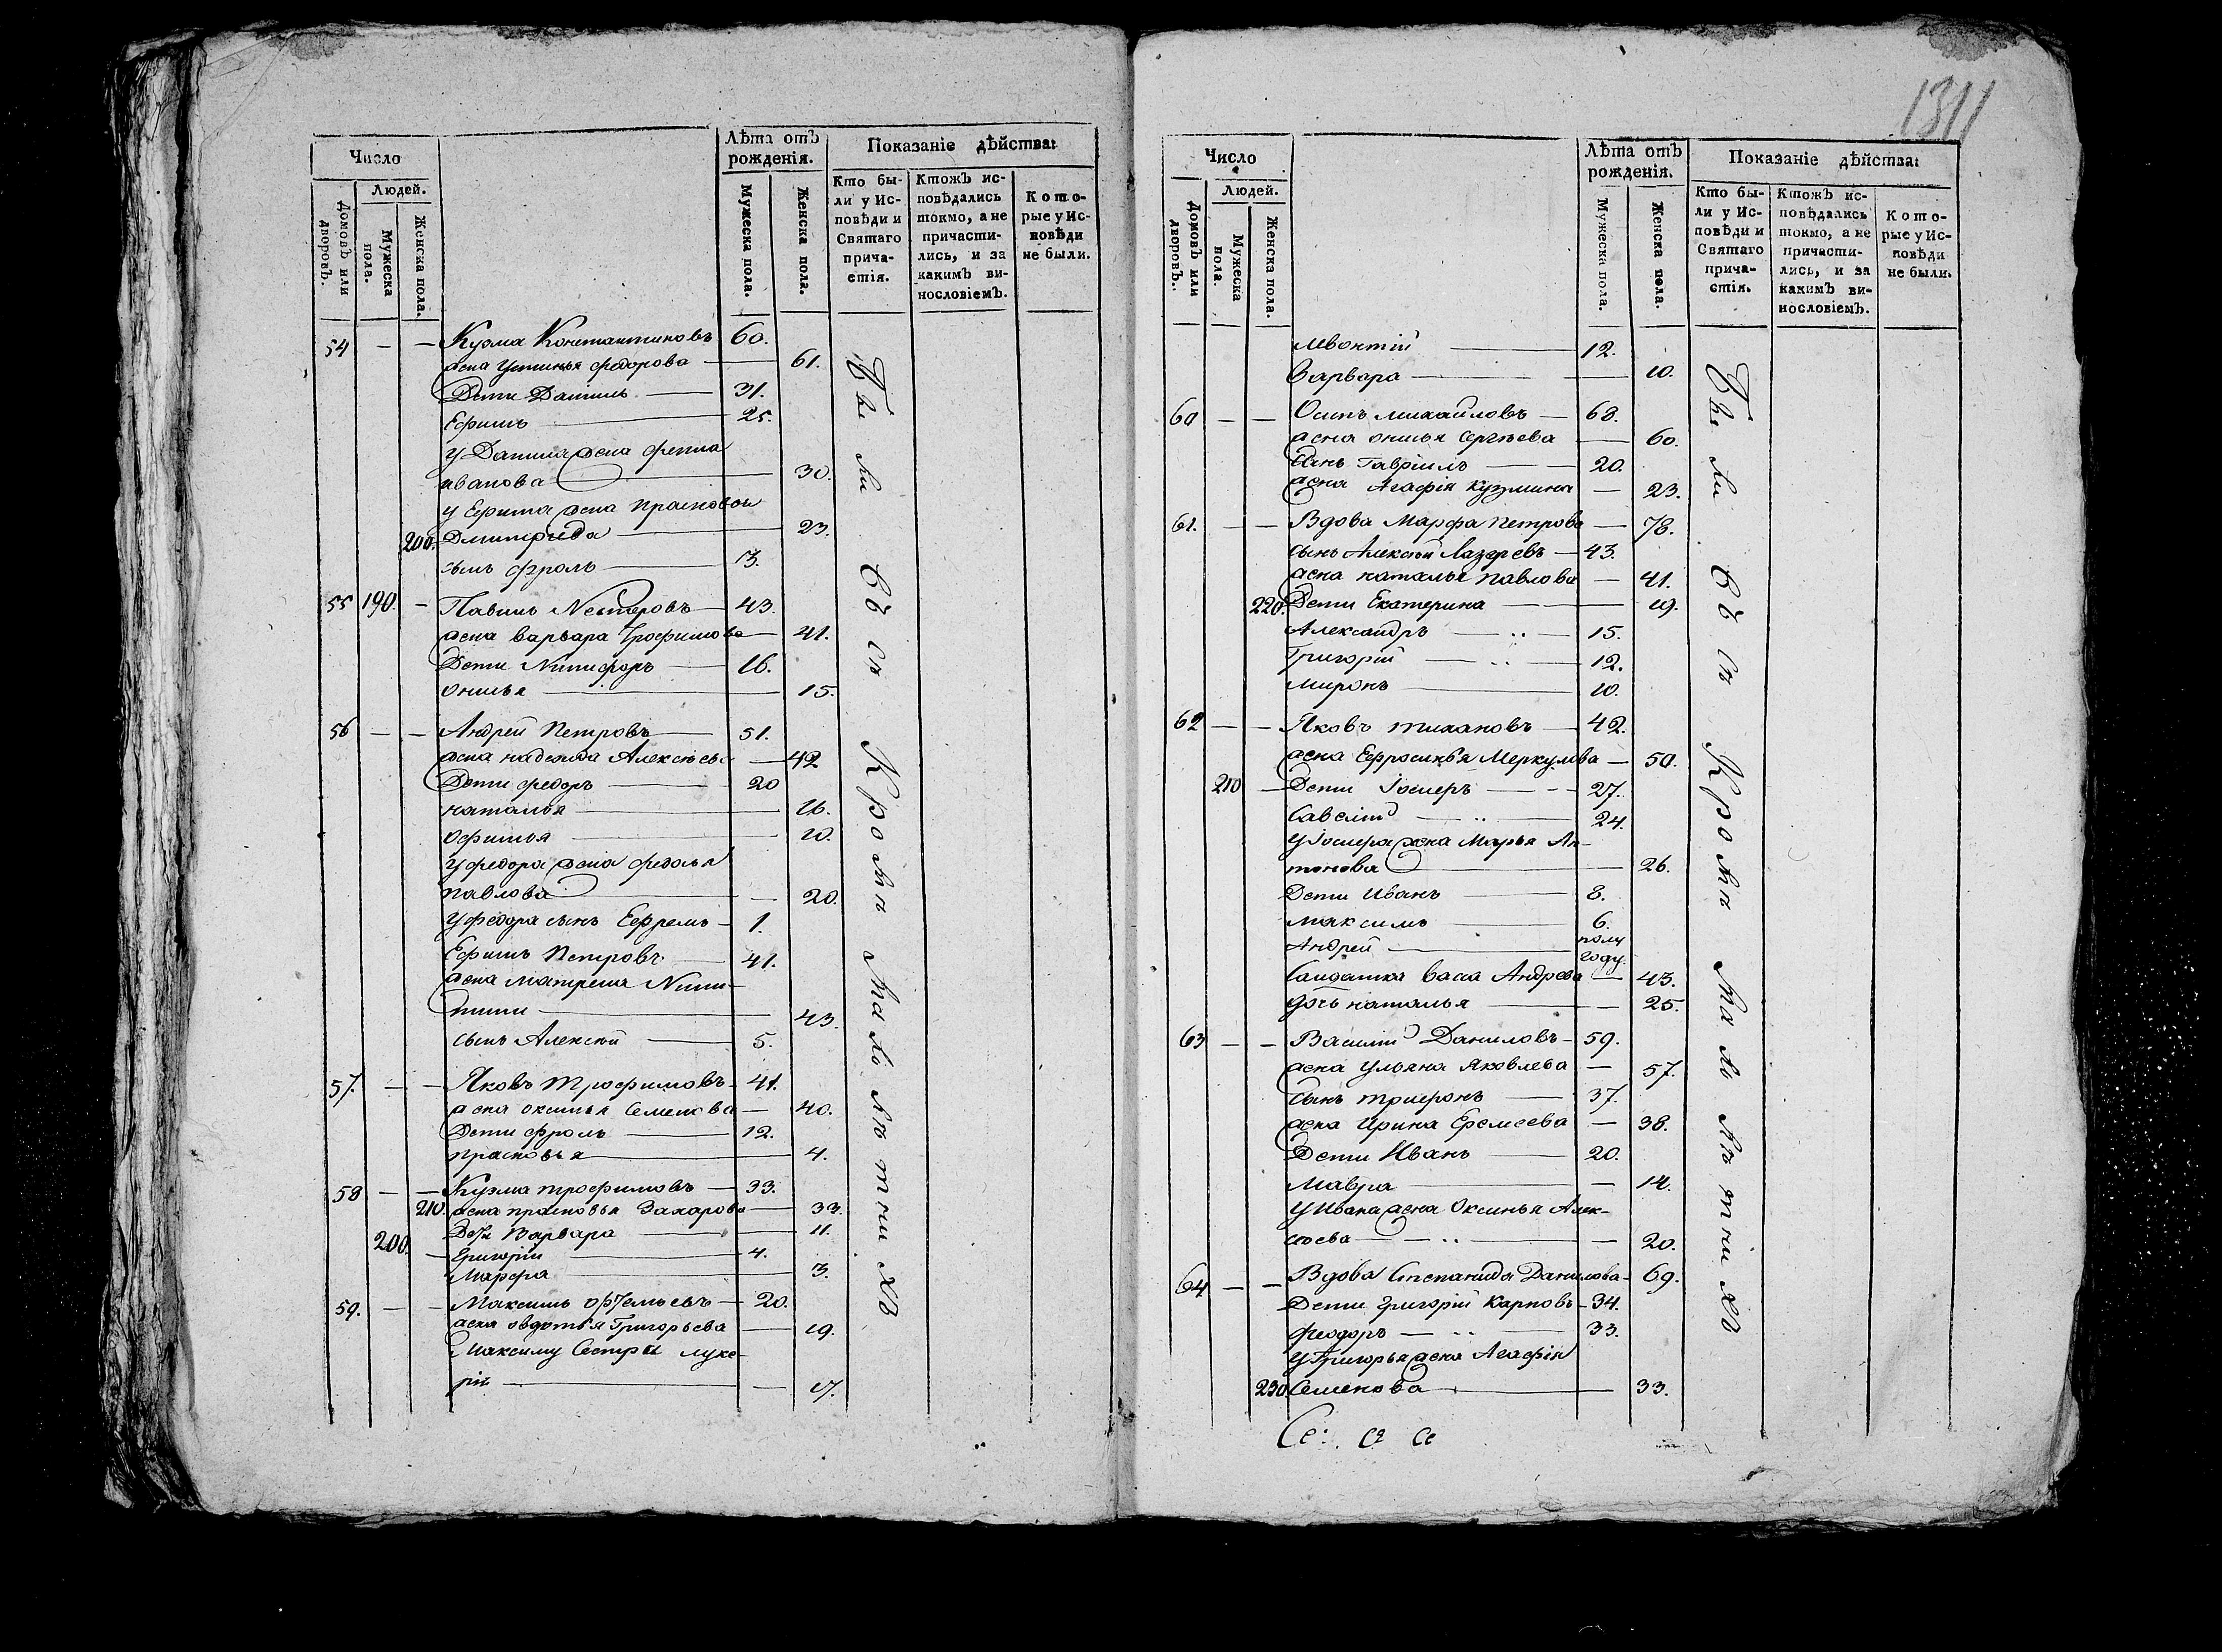 Число
Людей.
Домовъ или дворовъ.
Мужеска пола.
Женска пола.
Лѣта отъ рожденія.
Мужеска пола.
Женска пола.
Показаніе дѣйства:
Кто бы-
ли у Ис-
повѣди и
Святаго
прича-
стія.
Ктожъ ис-
повѣдались
токмо, а не
причасти-
лись, и за
какимъ ви-
нословіемъ.
Кото-
рые у Ис-
повѣди
не были.
54 — — Кузма Константиновъ 60.
жена Устинья федорова — 61.
Дети Данилъ — 31.
Ефимъ — 25.
у Данила жена фекла
иванова — 30.
у Ефима жена Прасковья
200. Дмитрева — 23.
сынъ фролъ — 3.
55 190. — Павилъ Нестеровъ — 43.
жена варвара Трофимова — 41.
Дети Никифоръ — 16.
онисья — 15.
56 — — Андрей Петровъ — 51.
жена надежда Алексѣева — 42
Дети федоръ — 20
наталья — 16.
Офимья — 10.
у федора жена федосья
павлова — 20.
у федора сынъ Ефремъ — 1.
Ефимъ Петровъ — 41.
жена матрена Ники-
тина — 43.
сынъ Алексѣй — 5.
57. — — Яковъ трофимовъ — 41.
жена оксинья Семенова — 40.
Дети фролъ — 12.
прасковья — 4.
58 — — Кузма трофимовъ — 33.
210. жена прасковья Захарова — 33.
200. Дети Варвара — 11.
— Григорій — 4.
Марфа — 3.
59. — — Максимъ офремьевъ — 20.
жена овдотья Григорьева — 19.
Максиму Сестра луке-
рія — 17.
Были въ оп Кровѣп мал лѣтніи
1311
Число
Людей.
Домовъ или дворовъ.
Мужеска пола.
Женска пола.
Лѣта отъ рожденія.
Мужеска пола.
Женска пола.
Показаніе дѣйства:
Кто бы-
ли у Ис-
повѣди и
Святаго
прича-
стія.
Ктожъ ис-
повѣдались
токмо, а не
причасти-
лись, и за
какимъ ви-
нословіемъ.
Кото-
рые у Ис-
повѣди
не были.
Левонтій — 12.
Варвара — 10.
60 — — Осипъ михайловъ — 68.
жена онисья Сергѣева — 60.
Сынъ Гавріилъ — 20.
жена Агафія кузмина — 23.
61. — — Вдова Марфа петрова — 78.
сынъ Алексѣй Лазаревъ — 43.
жена наталья павлова — 41.
220. Дети Екатерина — 19.
Александръ — 15.
Григорій — 12.
миронъ — 10.
62 — — Яковъ тихановъ — 42.
жена Ефросинья Меркулова — 50.
210 — Дети — 27.
Савелій — 24.
жена Марья Ан-
тонова — 26.
Дети Иванъ — 8.
максимъ — 6.
Андрей — полу году.
Салдатка васа Андрева — 43.
дочь наталья — 25.
63 — — Василій Даниловъ — 59.
жена ульяна Яковлева — 57.
Сынъ — 37.
жена Ирина Еремеева — 38.
Дети Иванъ — 20.
Мавра — 14.
у Ивана жена Оксинья Алек-
сѣева — 20.
64 — — Вдова Степанида Данилова — 69.
Дети Григорій Карповъ — 34.
феодоръ — 33.
у Григорья жена Агафія
230. Семенова — 33.